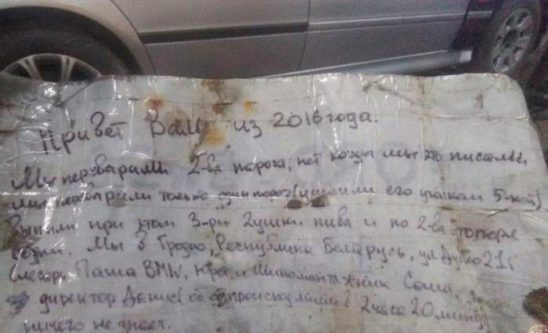 Привет Вам из 2016 года.
Мы переварили 2-ва порога, нет когда мы это писали
мы переварили только один порог (усилили его уголком 5-кой)
Выпили при этом 3-ри 2ушки пива и по 2-ва стопоре
водки. Мы в Гродно, Республика Беларусь, ул. 21
Слесарь Паша BMW, Юра и шиномонтажник Саша,
директор Денис о происходящем в 2 часа 20 минут
ничего не знает.